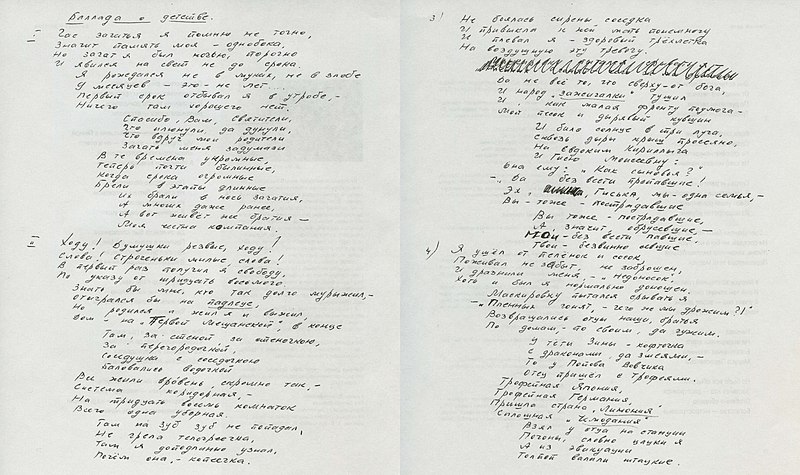 Баллада о детстве.
I
Час зачатья я помню не точно,
Значит память моя - однобока,
Но зачат я был ночью, порочно
И явился на свет не до срока.
Я рождался не в муках, не в злобе
9 месяцев - это не лет.
Первый срок отбывал я в утробе,-
Ничего там хорошего нет.
Спасибо, Вам, святители,
Что плюнули, да дунули,
Что вдруг мои родители
Зачать меня задумали
В те времена укромные,
Теперь почти былинные,
Когда срока огромные
Брели в этапы длинные
Их брали в ночь зачатия,
А многих даже ранее,
А вот живет же братия -
Моя честна компания.
II
Ходу! Думушки резвые, ходу!
Слова! Строченьки милые, слова!
В первый раз получил я свободу,
По указу от тридцать восьмого
Знать бы мне, кто так долго мурыжил,-
Отыгрался бы на подлеце.
Но родился и жил я и выжил,
Дом на Первой Мещанской в конце
Там, за стеной за стеночкою,
За - перегородочкой,
Соседушка с соседочкою
Баловались водочкой
Все жили вровень, скромно так,-
Система коридорная,-
На тридцать восемь комнаток
Всего одна уборная.
Там на зуб зуб не попадал,
Не грела телогреечка,
Там я доподлинно узнал,
Почём она,- копеечка.
3)
Не боялась сирены соседка
И привыкла к ней мать понемногу
И плевал я - здоровый трёхлетка
На воздушную эту тревогу.
Да не всё то, что сверху - от бога,
И народ "зажигалки" тушил
И как малая фронту подмога -
Мой песок и дырявый кувшин
И било солнце в три луча,
Сквозь дыры крыш просеяно,
На Евдоким Кирилыча
И Гисю Моисеевну:
Она ему: "Как сыновья?"
- Да без вести пропавшие!
Эх, Гиська, мы - одна семья,-
Вы - тоже - пострадавшие
Вы тоже - пострадавшие,
А значит, обрусевшие,-
Мои - без вести павшие,
Твои - безвинно севшие
4)
Я ушёл от пелёнок и сосок,
Поживал не забыт - не заброшен,
И дразнили меня,- "недоносок",
Хоть и был я нормально доношен.
Маскировку пытался срывать я
- Пленных гонят,- чего ж мы дрожим?!
Возвращались отцы наши, братья
По домам,- по своим, да чужим.
У тёти Зины - кофточка
С драконами, да змеями,-
То у Попова Вовчика
Отец пришёл с трофеями.
Трофейная Япония,
Трофейная Германия
Пришла страна "Лимония",
Сплошная "Чемодания"
Взял у отца на станции
Погоны, словно цацки я
А из эвакуации
Толпой валили штатские.